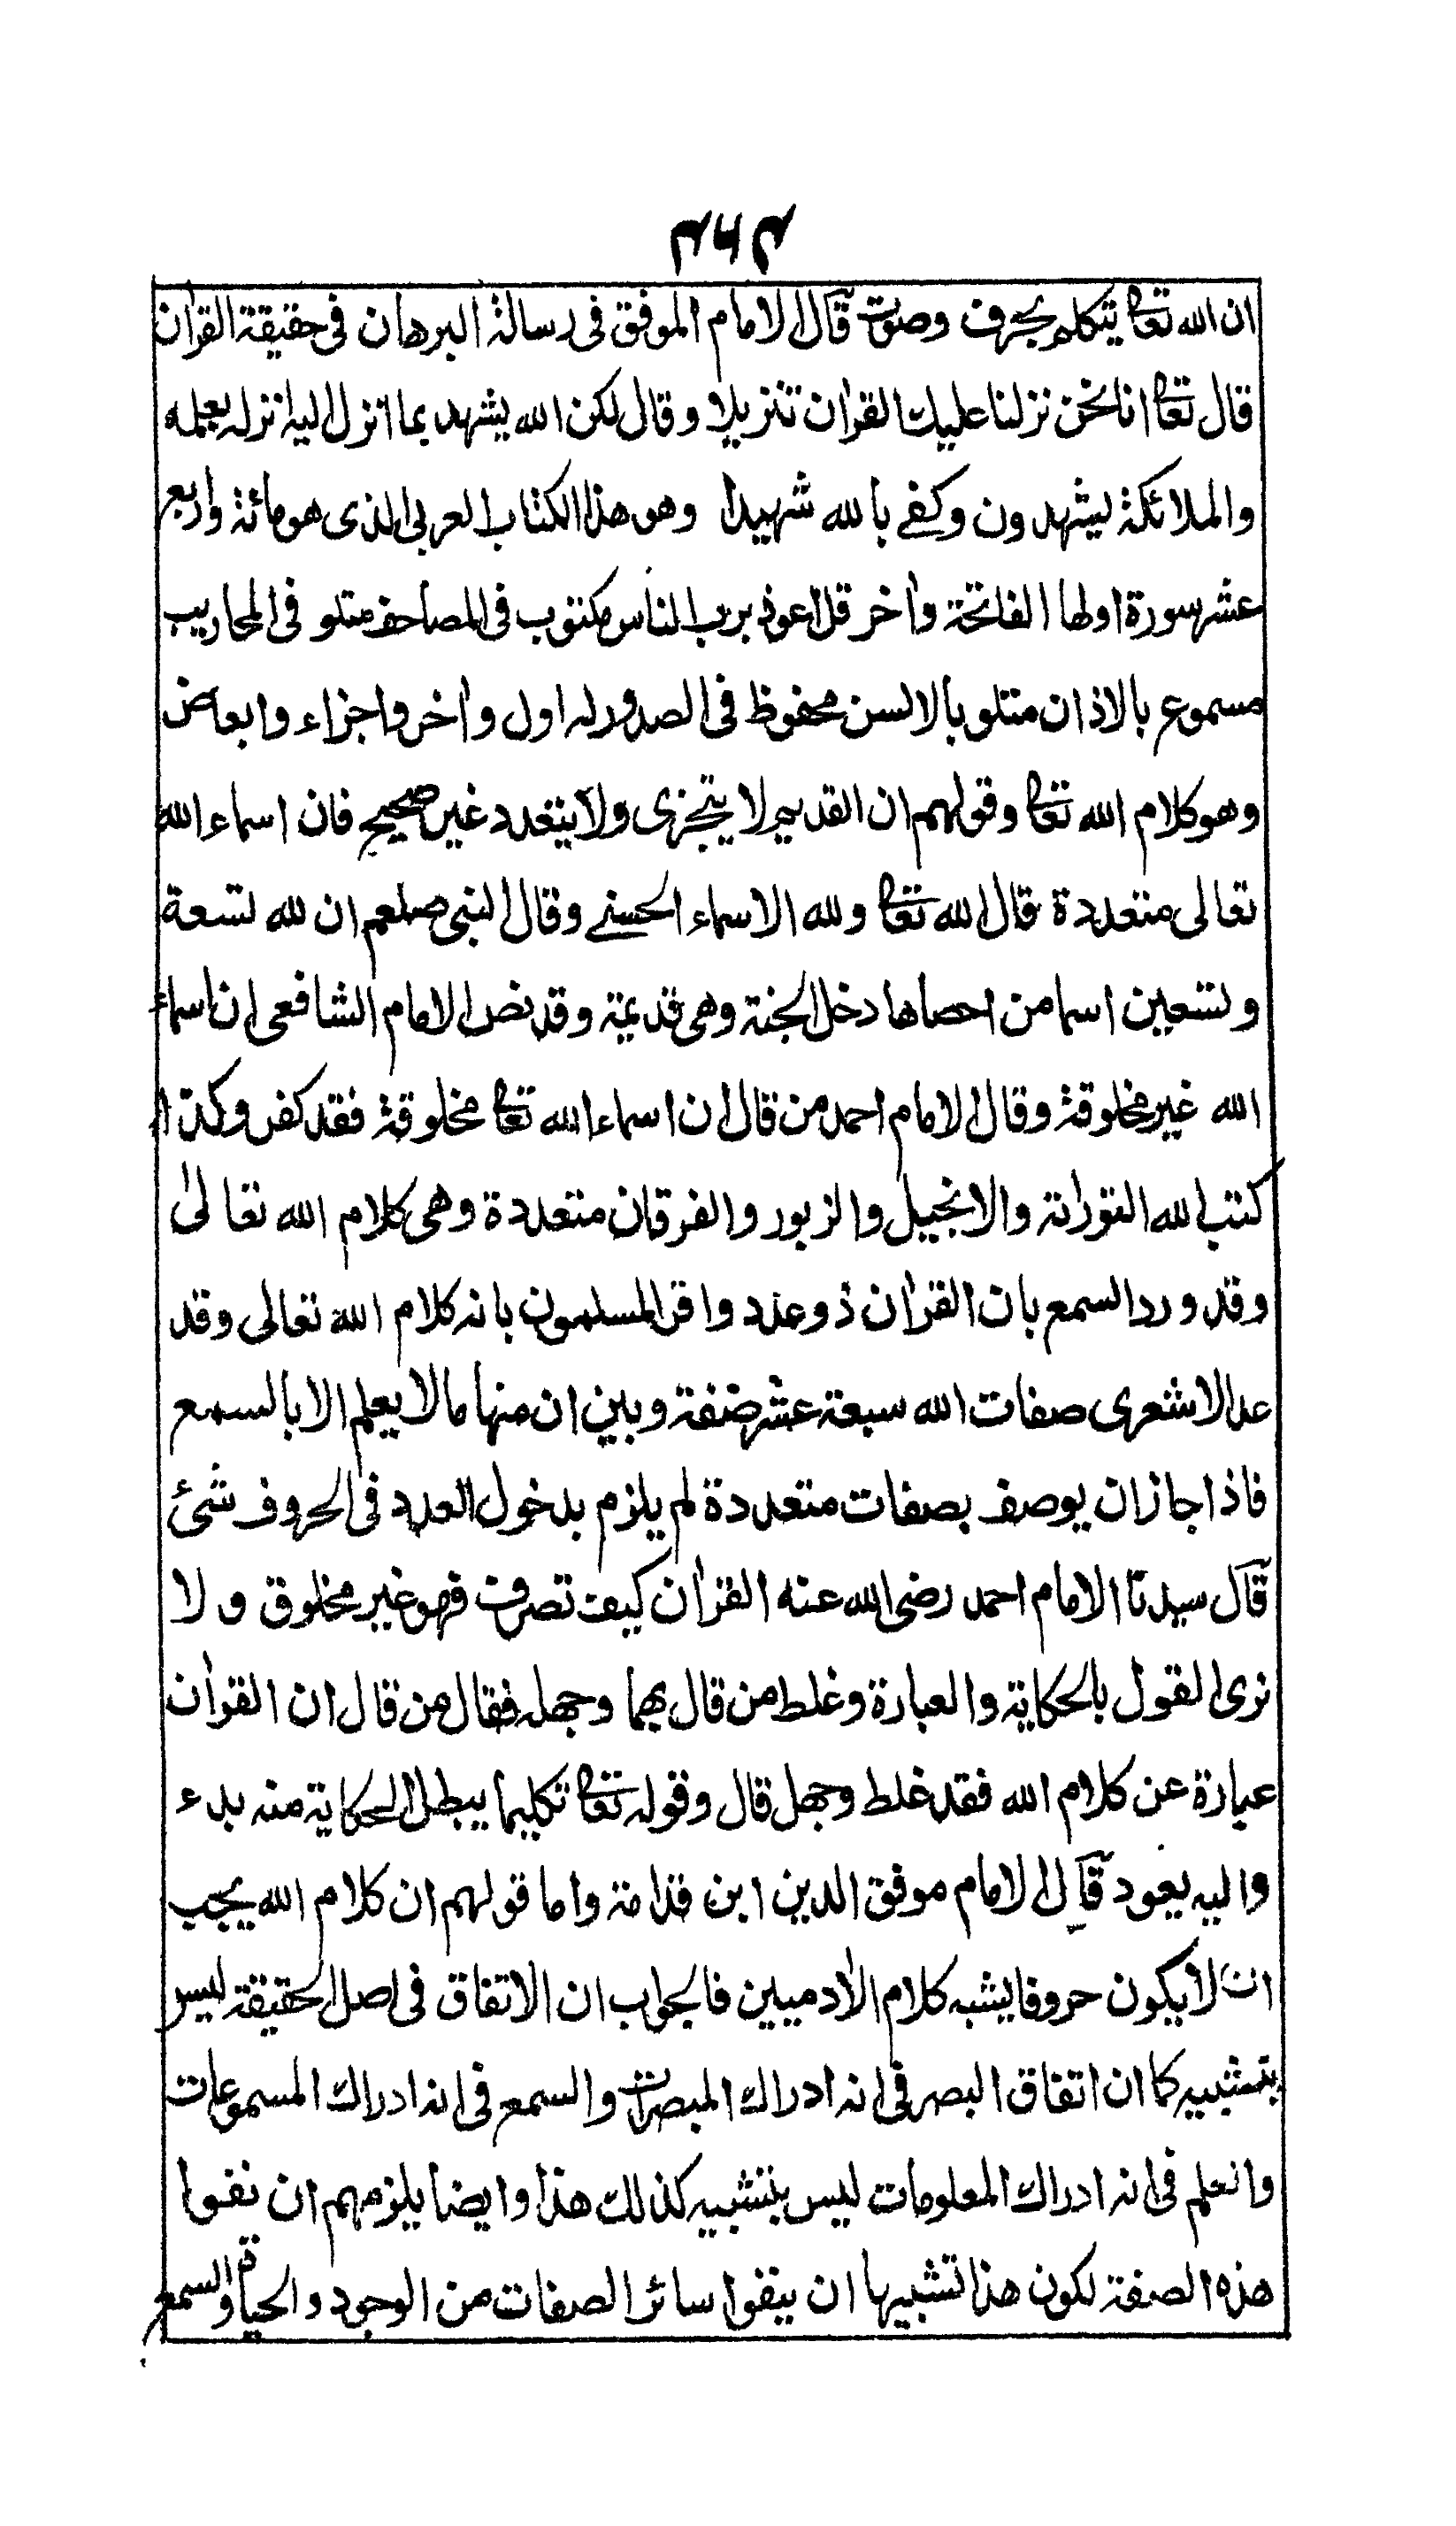 ان الله تعالى يتكلم بحرف وصوت قال الامام الموفق فى رسالة البرهان فى حقيقة القرآن
قال تعالى انا نحن نزلنا عليك القرآن تنزيلا وقال لكن الله يشهد بما انزل اليه انزله بعلمه
والملائكة يشهدون وكفى بالله شهيدا وهو هذا الكتاب العربى الذى هو مائة واربع
عشر سورة اولها الفاتحة وآخر قل اعوذ برب الناس مكتوب فى المصاحف متلو فى المحاريب
مسموع بالاذان متلو بالالسن محفوظ فى الصدور له اول وآخر واجزاء وابعاض
وهو كلام الله تعالى وقولهم ان القديم لا يتجزى ولا يتعدد غير صحيح فان اسماء الله
تعالى متعددة قال الله تعالى ولله الاسماء الحسنى وقال النبى صلعم ان لله تسعة
وتسعين اسما من احصاها دخل الجنة وهى قديمة وقد نص الامام الشافعى ان اسماء
الله غير مخلوقة وقال الامام احمد من قال ان اسماء الله تعالى مخلوقة فقد كفر وكذا
كتب الله التوراة والانجيل والزبور والفرقان متعددة وهى كلام الله تعالى
وقد ورد السمع بان القرآن ذو عدد واقر المسلمون بانه كلام الله تعالى وقد
عد الاشعرى صفات الله سبعة عشر صفة وبين ان منها ما لا يعلم الا بالسمع
فاذا جاز ان يوصف بصفات متعددة لم يلزم بدخول العدد فى الحروف شئ
قال سيدنا الامام احمد رضى الله عنه القرآن كيف تصرف فهو غير مخلوق ولا
نرى القول بالحكاية والعبارة وغلط من قال بهما وجهله فقال من قال ان القرآن
عبارة عن كلام الله فقد غلط وجهل قال وقوله تعالى تكليما يبطل الحكاية منه بدء
واليه يعود قال الامام موفق الدين ابن قدامة واما قولهم ان كلام الله يجب
ان لا يكون حروفا يشبه كلام الآدميين فالجواب ان الاتفاق فى اصل الحقيقة ليس
بتشبيه كما ان اتفاق البصر فى انه ادراك المبصرات والسمع فى انه ادراك المسموعات
والعلم فى انه ادراك المعلومات ليس بتشبيه كذلك هذا وايضا يلزمهم ان نفوا
هذه الصفة لكون هذا تشبيها ان ينفوا سائر الصفات من الوجود والحياة والسمع